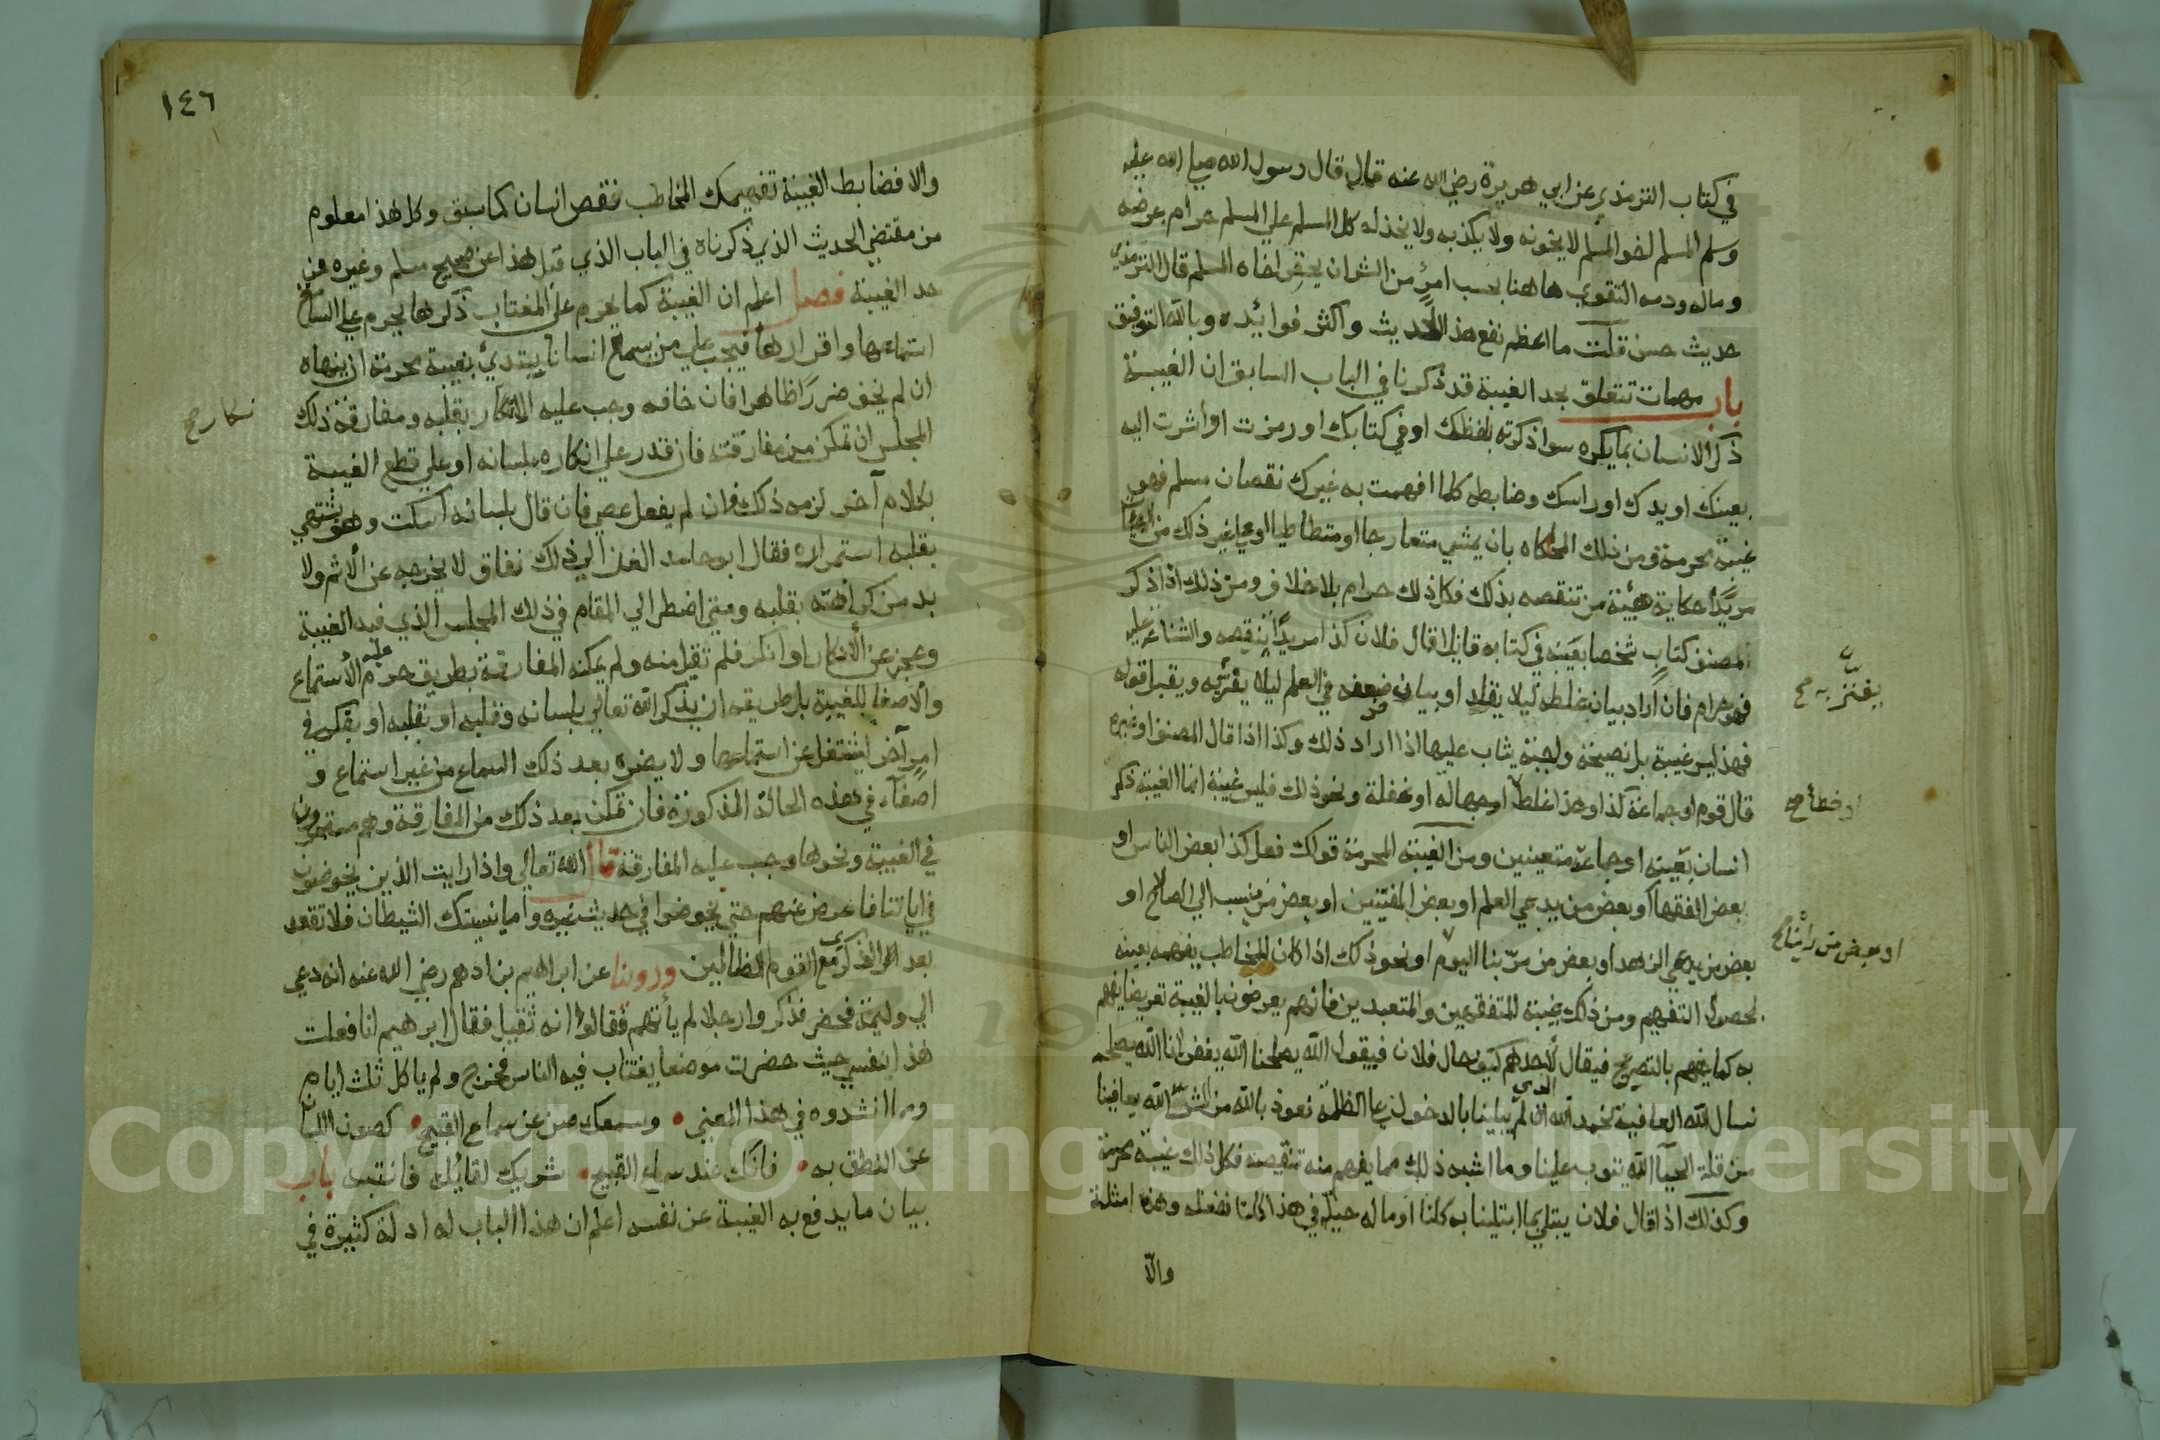 في كتاب الترمذي عن ابي هريرة رضي الله عنه قال قال رسول الله صلي الله عليه
وسلم المسلم اخو المسلم لا يخونه ولا يكذبه ولا يخذله كل المسلم علي المسلم حرام عرضه
وماله ودمه التقوي هاهنا بحسب امرئ من الشر ان يحقر اخاه المسلم قال الترمذي
حديث حسن قلت ما اعظم نفع هذا الحديث واكثر فوائده وبالله التوفيق
باب مهمات تتعلق بحد الغيبة قد ذكرنا في الباب السابق ان الغيبة
ذكر الانسان بما يكره سوا ذكرته بلفظك او في كتابك او رمزت او اشرت اليه
بعينك او يدك او راسك وضابطه كلما افهمت به غيرك نقصان مسلم فهو
غيبة محرمة ومن ذلك المحاكاه بان يمشي متعارجا او متطاطيا او علي غير ذلك من الهيئات
مريدا حكاية هيئة من تنقصه بذلك فكل ذلك حرام بلا خلاف ومن ذلك اذا ذكر
المصنف كتاب شخصا بعينه في كتابه قايلا قال فلان كذا مريدا تنقصه والشناعة عليه
فهو حرام فان اراد بيان غلطه ليلا يقلد او بيان ضعفه في العلم ليلا يغتر به ويقبل قوله
فهذا ليس غيبة بل نصيحة واجبة يثاب عليها اذا اراد ذلك وكذا اذا قال المصنف او غيره
قال قوم او جماعة كذا وهذا غلط او جهاله او غفلة ونحو ذلك فليس غيبة انما الغيبة ذكر
انسان بعينه او جماعة متعينين ومن الغيبة المحرمة قولك فعل كذا بعض الناس او
بعض الفقها او بعض من يدعي العلم او بعض المفتيين او بعض من ينسب الي الصلاح او
بعض من يدعي الزهد او بعض من مر بنا اليوم او نحو ذلك اذا كان المخاطب يفهمه بعينه
لحصول التفهيم ومن ذلك غيبة المتفقهين والمتعبدين فانهم يعرضون بالغيبة تعريضا يفهم
به كما يفهم بالتصريح فيقال لاحدهم كيف حال فلان فيقول الله يصلحنا الله يغفر لنا الله يصلحه
نسال الله العافية نحمد الله الذي لم يبلينا بالدخول علي الظلمة نعوذ بالله من الشر الله يعافينا
من قلة الحيآ الله يتوب علينا وما اشبه ذلك مما يفهم منه تنقيصه فكل ذلك غيبة محرمة
وكذلك اذا قال فلان يبتلي بما ابتلينا به كلنا او ماله حيلة في هذا كلنا نفعله وهذه امثلة
والّا
يغترّ به صح
او خطأ صح
او بعض من رأيناه
١٤٦
والا فضابط الغيبة تفهيمك المخاطب نقص انسان كما سبق وكل هذا معلوم
من مقتضي الحديث الذي ذكرناه في الباب الذي قبل هذا عن صحيح مسلم وغيره من
حد الغيبة فصل اعلم ان الغيبة كما يحرم علي المغتاب ذكرها يحرم علي السامع
استماعها واقرارها فيجب علي من سمع انسانا يبتدي بغيبة محرمة ان ينهاه
ان لم يخف ضررا ظاهرا فان خافه وجب عليه الانكار بقلبه ومفارقة ذلك
المجلس ان تمكن من مفارقته فان قدر علي انكاره بلسانه او علي قطع الغيبة
بكلام آخر لزمه ذلك فان لم يفعل عصي فان قال بلسانه اسكت وهو يشتهي
بقلبه استمراره فقال ابو حامد الغزالي ذلك نفاق لا يخرجه عن الاثم ولا
بد من كراهته بقلبه ومتي اضطر الي المقام في ذلك المجلس الذي فيه الغيبة
وعجز عن الانكار او انكر فلم تقبل منه ولم يمكنه المفارقة بطريق حرم عليه الاستماع
والاصغا للغيبة بل طريقه ان يذكر الله تعالي بلسانه وقلبه او بقلبه او يفكر في
امر آخر ليشتغل عن استماعها ولا يضره بعد ذلك السماع من غير استماع و
اصغآء في هذه الحالة المذكورة فان تمكن بعد ذلك من المفارقة وهم مستمرون
في الغيبة ونحوها وجب عليه المفارقة قال الله تعالي واذا رايت الذين يخوضون
في اياتنا فاعرض عنهم حتي يخوضوا في حديث غيره واما ينسينك الشيطان فلا تقعد
بعد الذكري مع القوم الظالمين وروينا عن ابراهيم بن ادهم رضي الله عنه انه دعي
الي وليمة فحضر فذكروا رجلا لم يأتهم فقالوا انه ثقيل فقال ابرهيم انا فعلت
هذا بنفسي حيث حضرت موضعا يغتاب فيه الناس فخرج ولم ياكل ثلث ايام
ومما انشدوه في هذا المعني • وسمعك صن عن سماع القبيح • كصون اللسان
عن النطق به • فانك عند سماع القبيح • شريك لقائله فانتبه باب
بيان ما يدفع به الغيبة عن نفسه اعلم ان هذا الباب له ادلة كثيرة في
Copyright © King Saud University